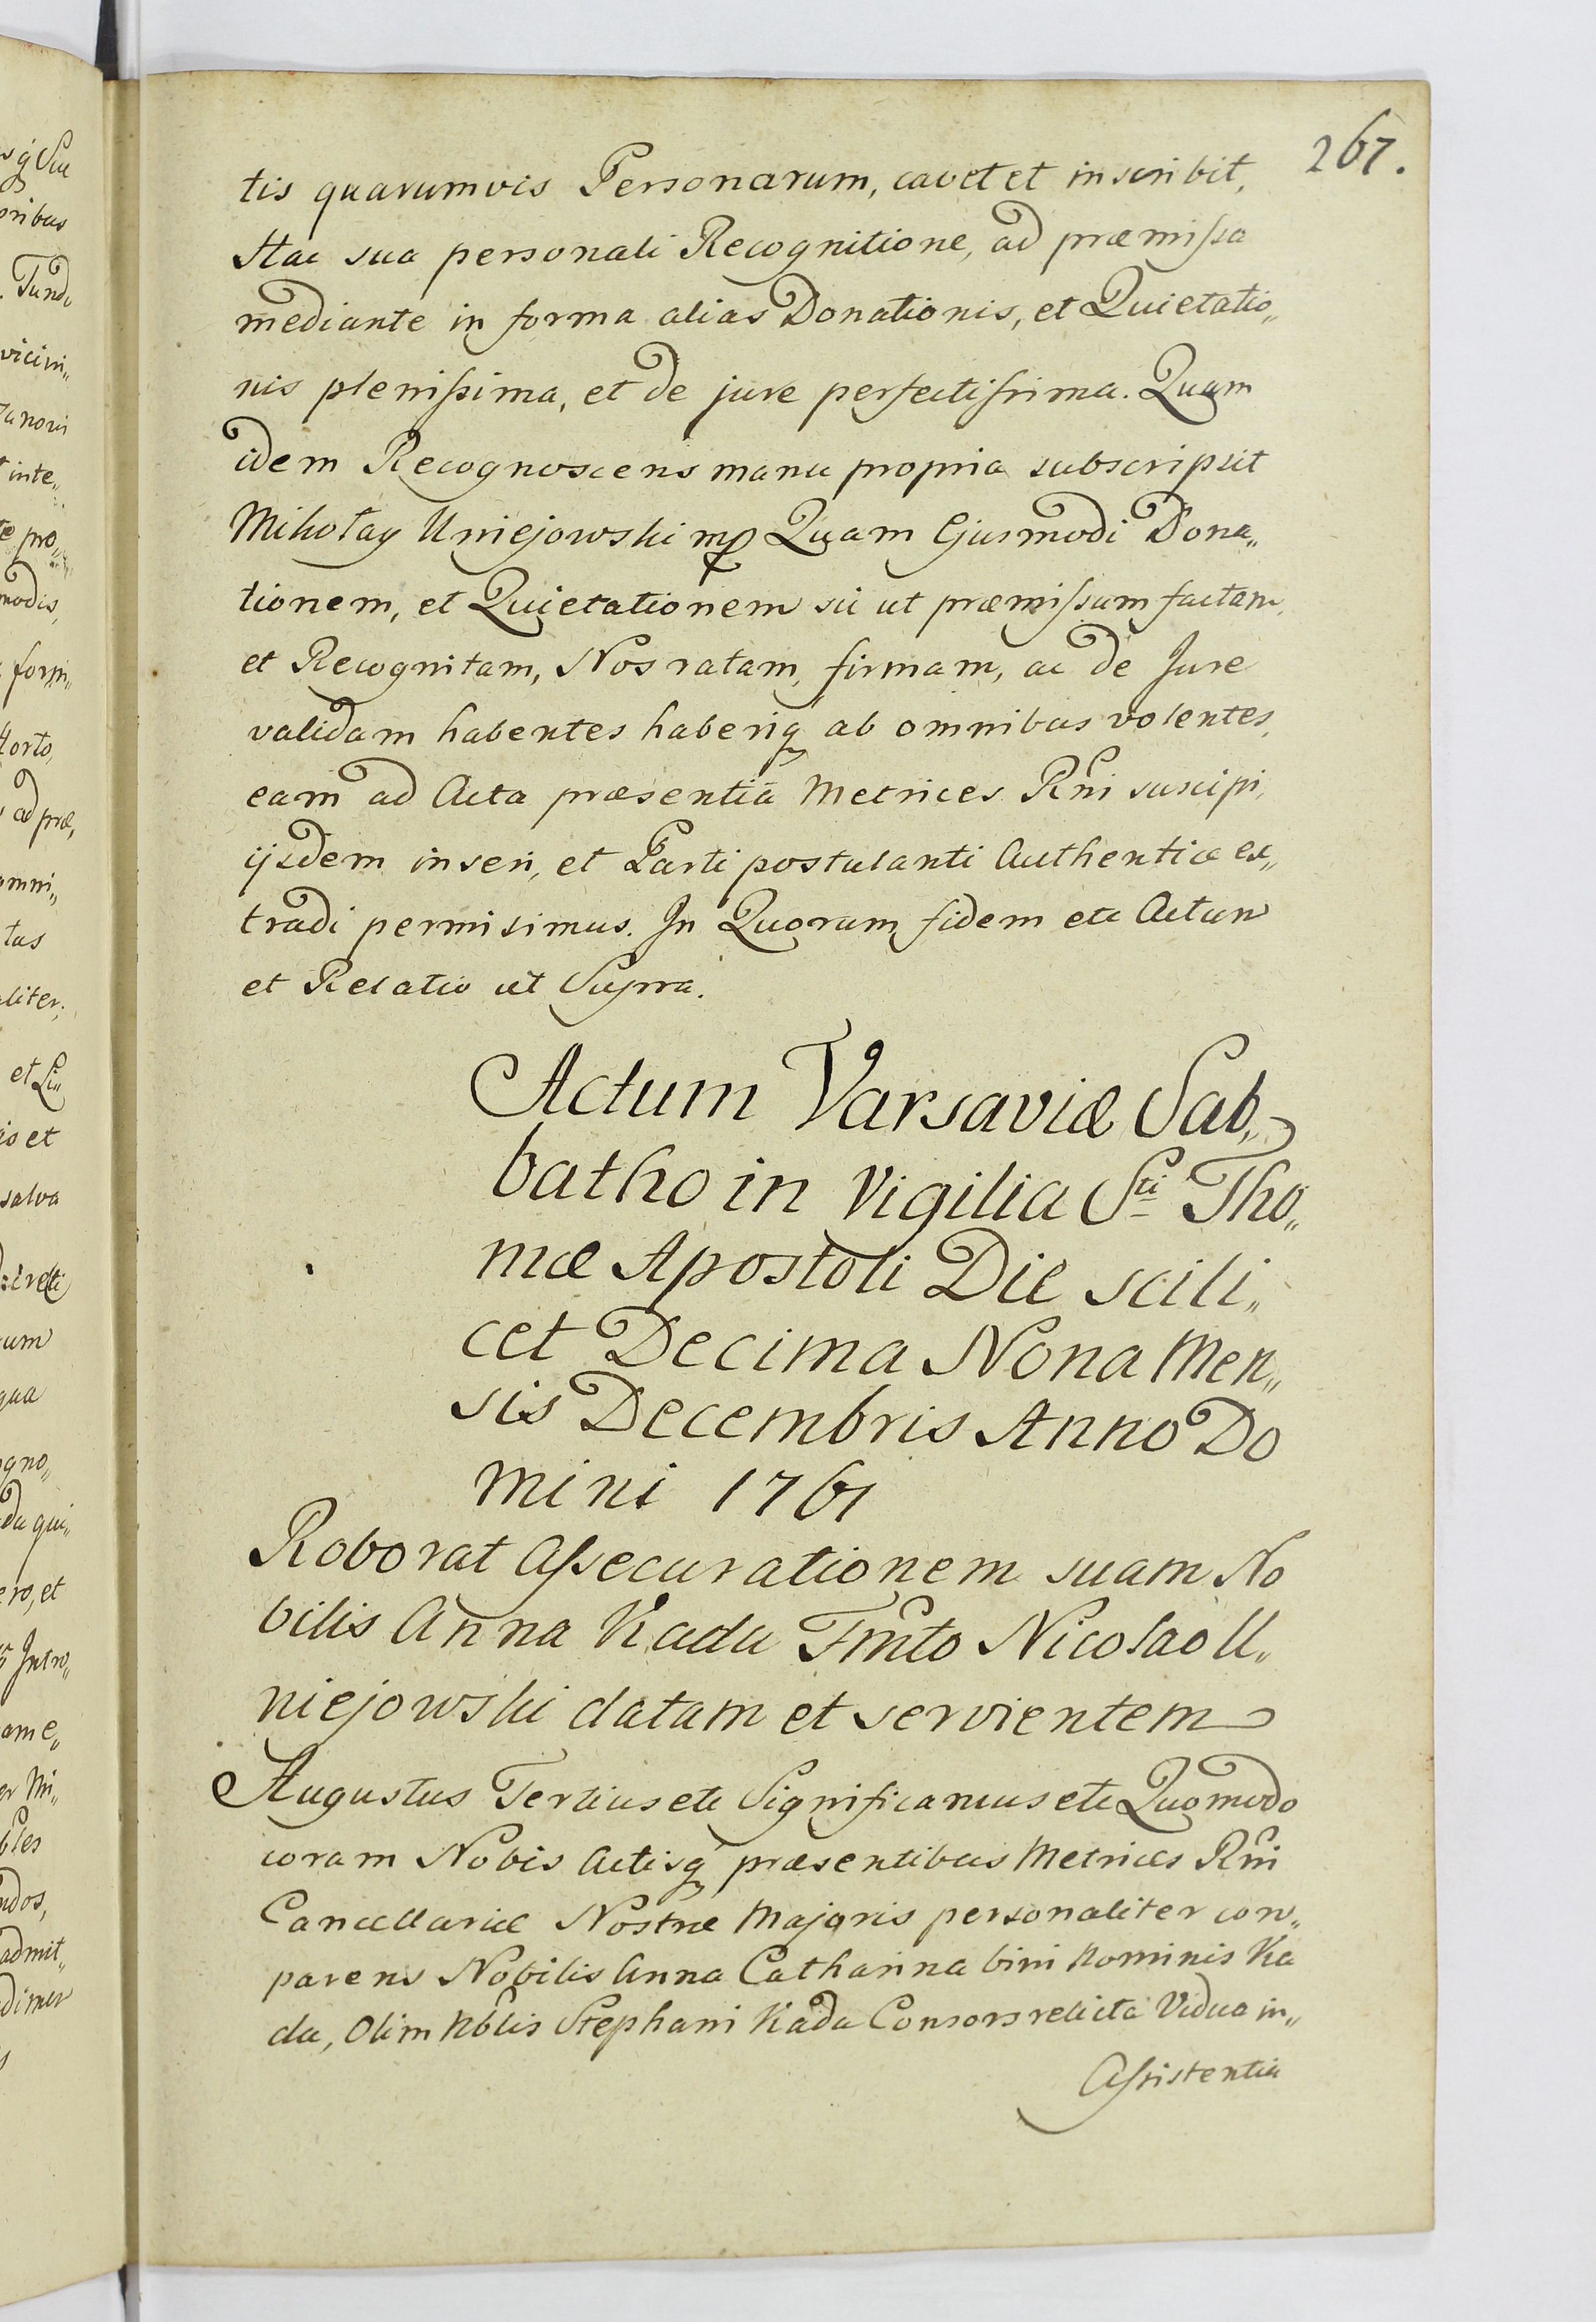 267.
tis quarumvis Personarum, cavet et inscribit,
Hac sua personali Recognitione, ad præmissa
mediante in forma alias Donationis, et Quietatio„
nis plenissima, et de jure perfectissima. Quam
idem Recognoscens manu propria subscripsit
Mikołay Uniejowski mp Quam Ejusmodi Dona„
tionem, et Quietationem sic ut præmissum factam,
et Recognitam, Nos ratam, firmam, ac de Jure
validam habentes haberiq ab omnibus volentes,
eam ad Acta præsentia Metrices Rni suscipi,
ijsdem inseri, et Parti postulanti Authentice ex„
tradi permisimus. In Quorum fidem etc Actum
et Relatio ut Supra.
Actum Varsaviæ Sab„
batho in Vigilia Sti Tho„
mæ Apostoli Die scili„
cet Decima Nona Men„
sis Decembris Anno Do
mini 1761
Roborat Assecurationem suam No
bilis Anna Kadu Fmto Nicolao U„
niejowski datam et servientem
Augustus Tertius etc Significamus etc Quomodo
coram Nobis Actisq præsentibus Metrices Rni
Cancellariæ Nostræ Majoris personaliter com„
parens Nobilis Anna Catharina bini Nominis Ka
du, Olim Nblis Stephani Kadu Consors relicta Vidua in„
Assistentia